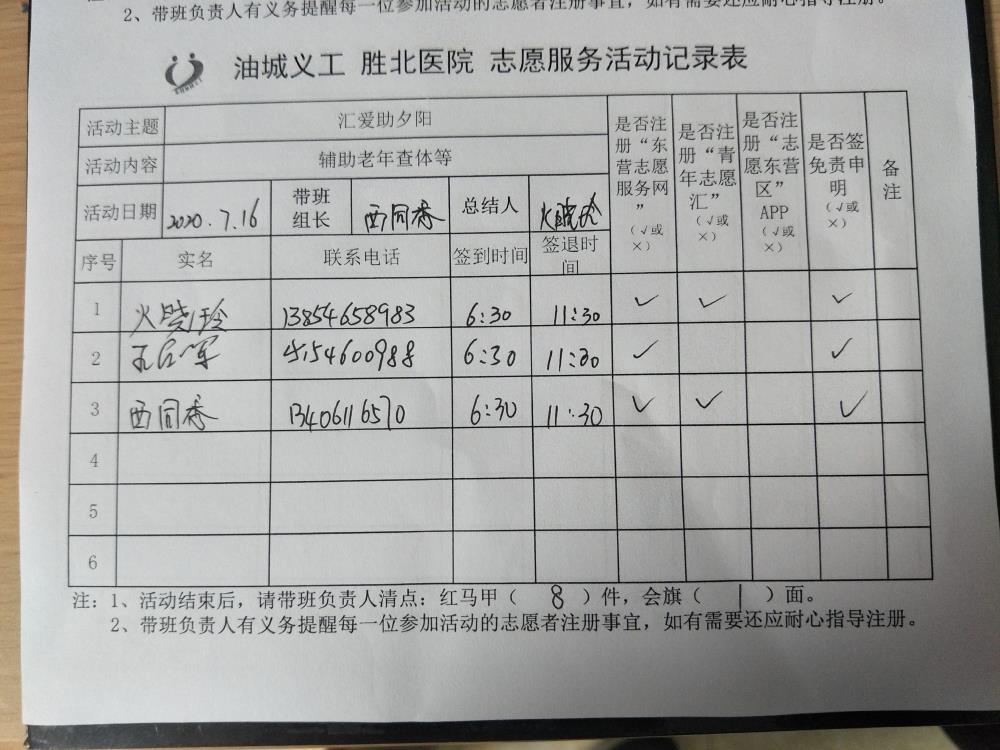 2、带班负责人有义务提醒每一位参加活动的志愿者注册事宜，如有需要还应耐心指导注册。
油城义工 胜北医院 志愿服务活动记录表
活动主题 汇爱助夕阳 是否注册“东营志愿服务网”（√或×） 是否注册“青年志愿汇”（√或×） 是否注册“志愿东营区”APP（√或×） 是否签免责申明（√或×） 备注
活动内容 辅助老年查体等
活动日期 2020.7.16 带班组长 西同春 总结人 火晓玲
序号 实名 联系电话 签到时间 签退时间
1 火晓玲 13854658983 6:30 11:30 ✓ ✓ ✓
2 军 154600988 6:30 11:30 ✓ ✓
3 西同春 13406116570 6:30 11:30 ✓ ✓ ✓
4
5
6
注：1、活动结束后，请带班负责人清点：红马甲（ 8 ）件，会旗（ 1 ）面。
2、带班负责人有义务提醒每一位参加活动的志愿者注册事宜，如有需要还应耐心指导注册。